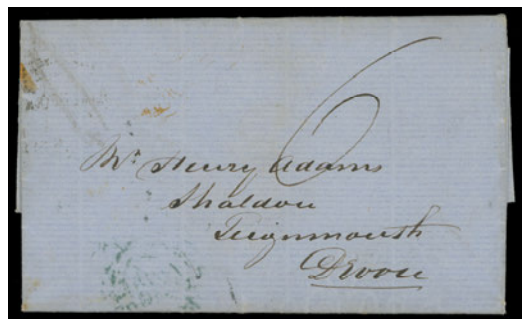 6
Mr Henry Adams
Shaldon
Teignmouth
Devon